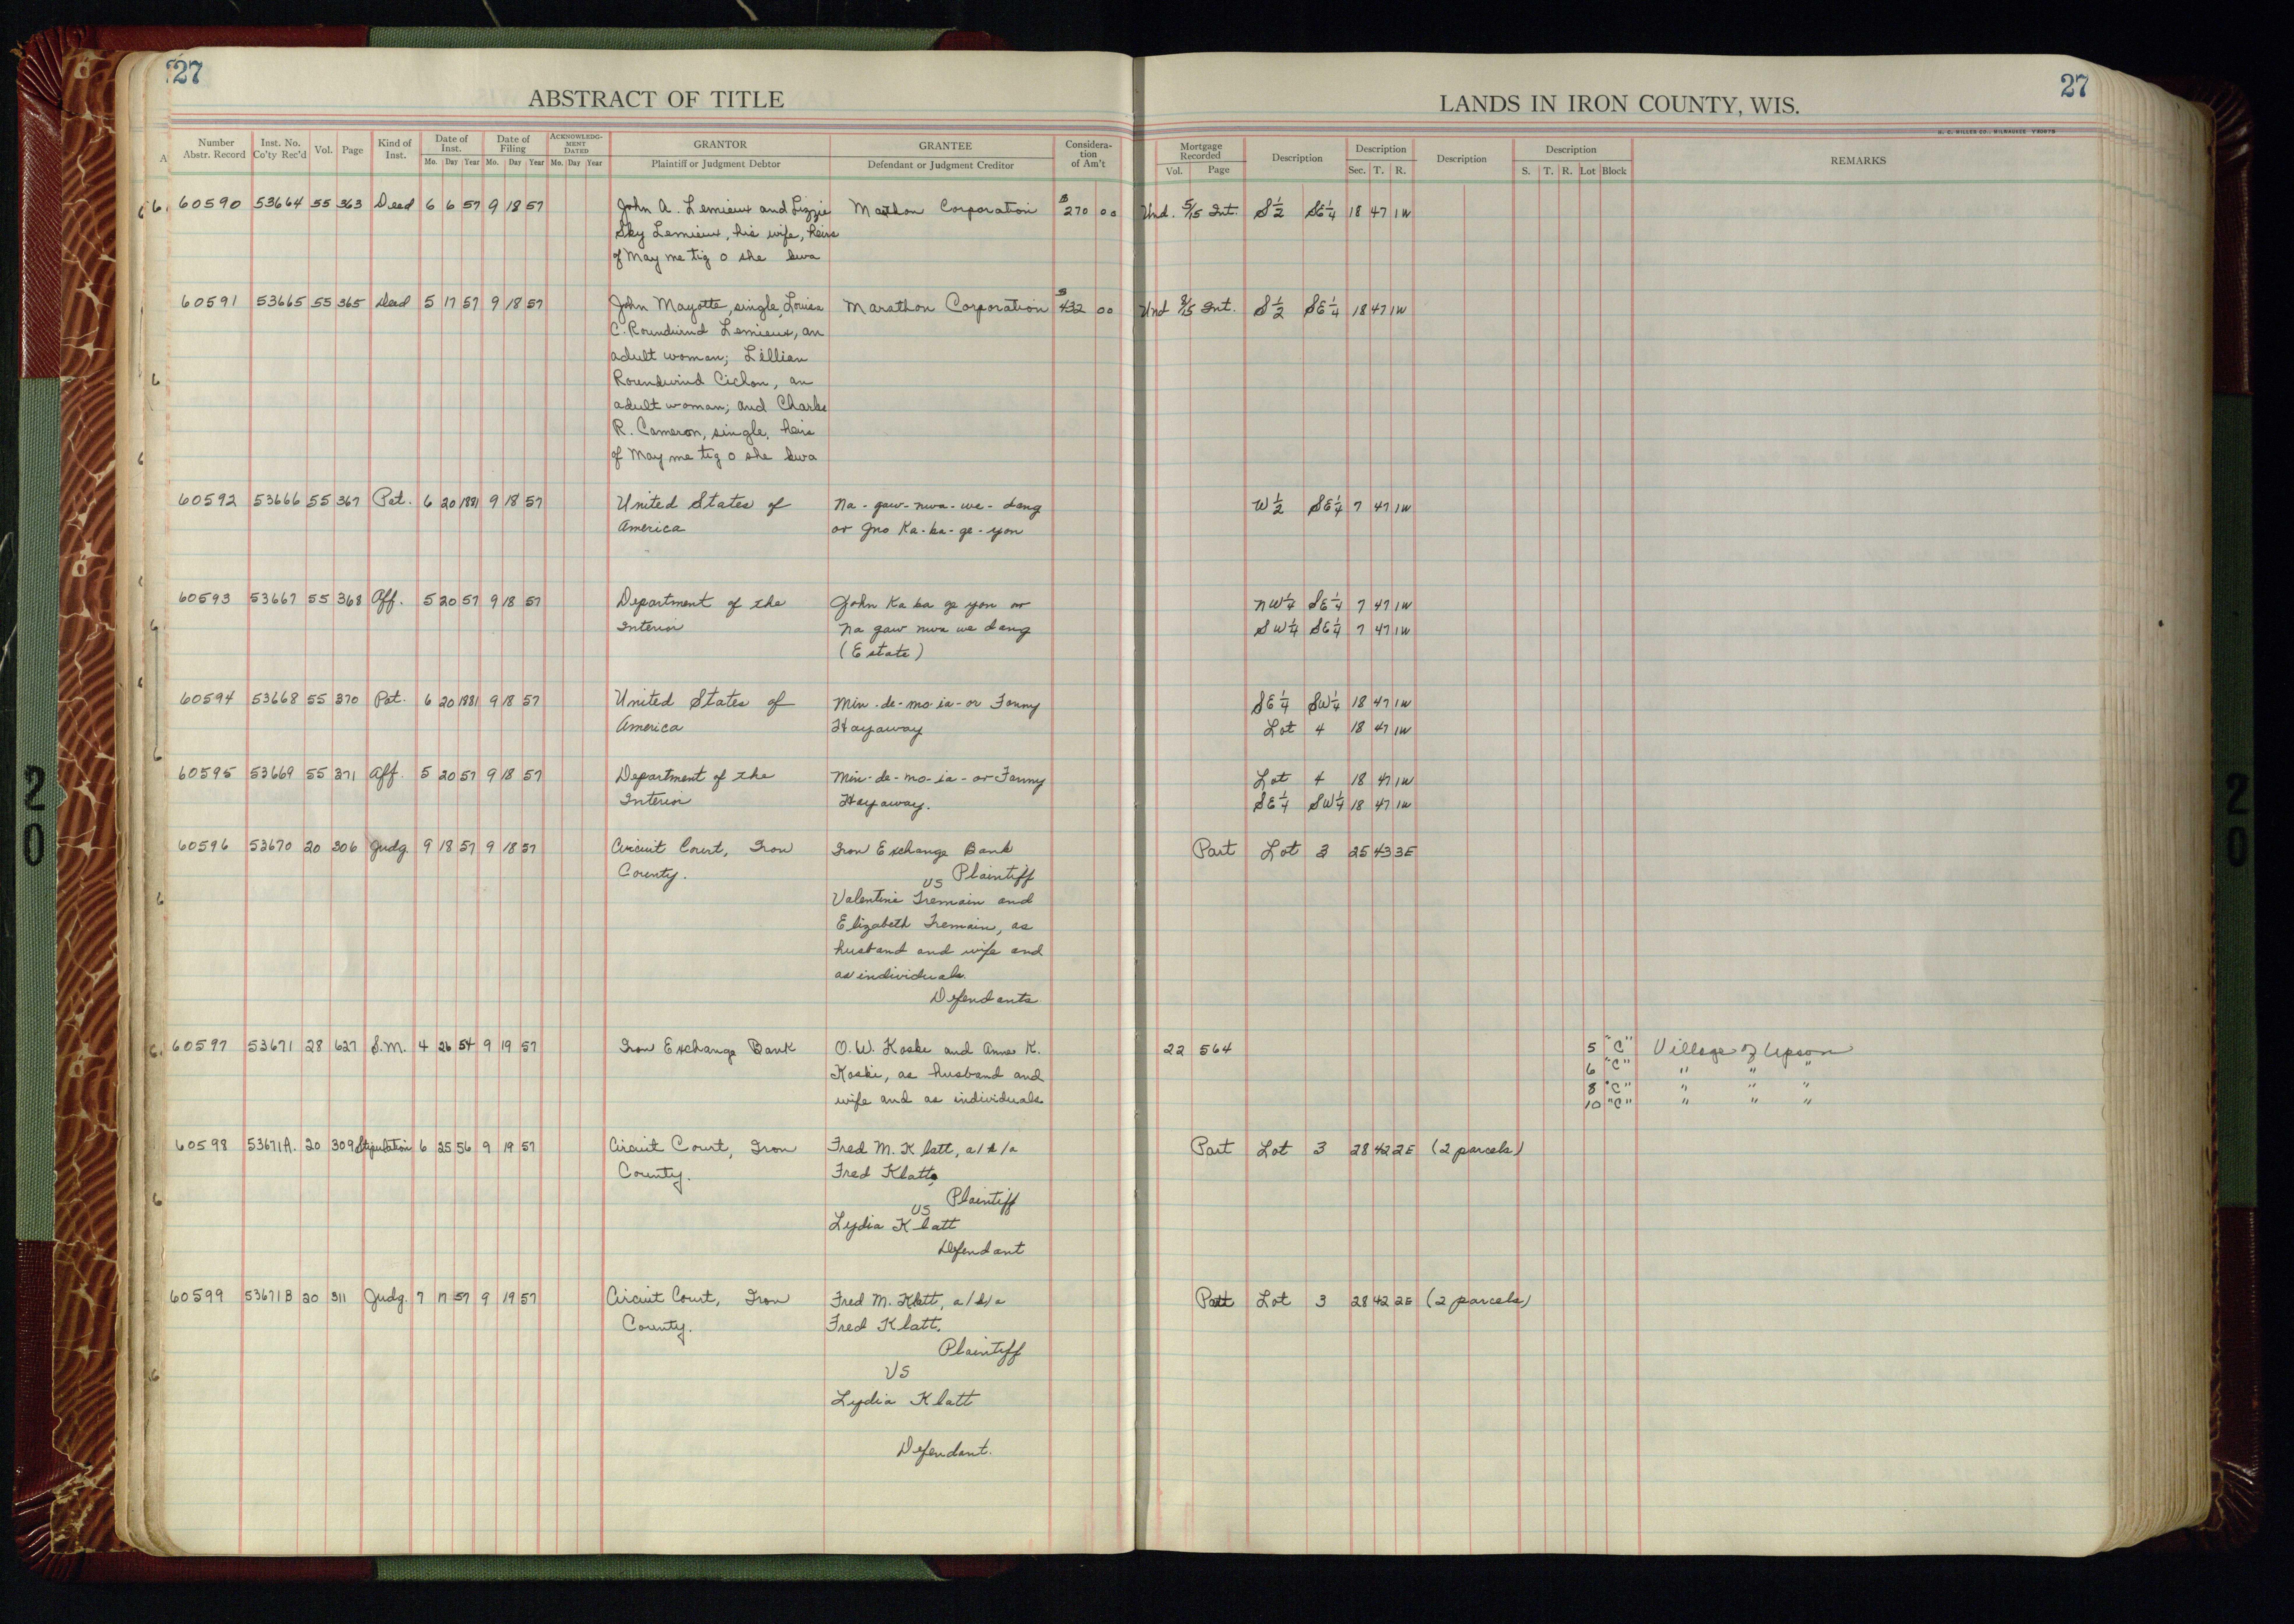 27
27
ABSTRACT OF TITLE
LANDS IN IRON COUNTY, WIS.
H. C. MILLER CO., MILWAUKEE
Number Abstr. Record Inst. No. Co'ty Rec'd Vol. Page Kind of Inst. Date of Inst. Mo. Day Year Date of Filing Mo. Day Year ACKNOWLEDGMENT DATED Mo. Day Year GRANTOR Plaintiff or Judgment Debtor GRANTEE Defendant or Judgment Creditor Consideration of Am't Mortgage Recorded Vol. Page Description Description Sec. T. R. Description Description S. T. R. Lot Block REMARKS
60590 53664 55 363 Deed 6 6 57 9 18 57 John A. Lemieux and Lizzie Mathon Corporation $270 00 Und. 5/15 Int. S½ SE¼ 18 47 1W
Sky Lemieux, his wife, heirs
of May me tig o she kwa
60591 53665 55 365 Deed 5 17 57 9 18 57 John Mayotte, single, Louisa Marathon Corporation $432 00 Und 8/15 Int. S½ SE¼ 18 47 1W
C. Roundwind Lemieux, an
adult woman; Lillian
Roundwind Cichon, an
adult woman; and Charles
R. Cameron, single, heirs
of May me tig o she kwa
60592 53666 55 367 Pat. 6 20 1881 9 18 57 United States of Na-gaw-nwa-we-dang W½ SE¼ 7 47 1W
America or Jno Ka-ba-ge-yon
60593 53667 55 368 Aff. 5 20 57 9 18 57 Department of the John Ka ba ge yon or NW¼ SE¼ 7 47 1W
Interior Na gaw nwa we dang SW¼ SE¼ 7 47 1W
(Estate)
60594 53668 55 370 Pat. 6 20 1881 9 18 57 United States of Min-de-mo-ia-or Fanny SE¼ SW¼ 18 47 1W
America Hayaway Lot 4 18 47 1W
60595 53669 55 371 Aff. 5 20 57 9 18 57 Department of the Min-de-mo-ia-or Fanny Lot 4 18 47 1W
Interior Hayaway. SE¼ SW¼ 18 47 1W
60596 53670 20 306 Judg. 9 18 57 9 18 57 Circuit Court, Iron Iron Exchange Bank Part Lot 3 25 43 3E
County. Plaintiff
VS
Valentine Tremain and
Elizabeth Tremain, as
husband and wife and
as individuals.
Defendants.
60597 53671 28 627 S.M. 4 26 54 9 19 57 Iron Exchange Bank O. W. Koske and Anna K. 22 564 5 "C" Village of Upson
6 "C" " " "
Koski, as husband and 8 "C" " " "
wife and as individuals 10 "C" " " "
60598 53671A. 20 309 Stipulation 6 25 56 9 19 57 Circuit Court, Iron Fred M. Klatt, a/k/a Part Lot 3 28 42 2E (2 parcels)
County. Fred Klatt,
Plaintiff
VS
Lydia Klatt
Defendant
60599 53671B 20 311 Judg. 7 17 57 9 19 57 Circuit Court, Iron Fred M. Klatt, a/k/a Part Lot 3 28 42 2E (2 parcels)
County. Fred Klatt.
Plaintiff
VS
Lydia Klatt
Defendant.
20
20